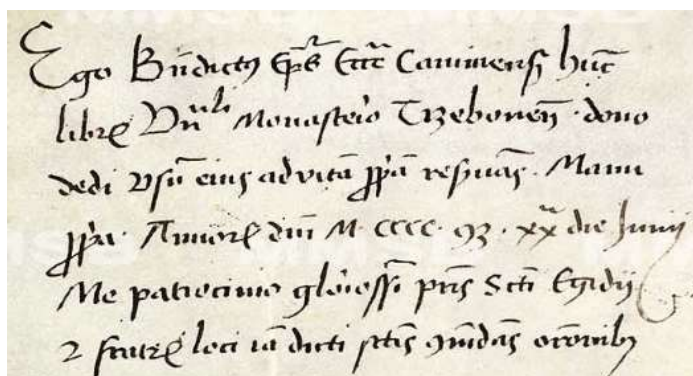 Ego Bn̄dictꝯ Ep̄s Eccē Caminensꝭ hūc
librū Vn̄ili Monasterio Trzebonen̄ · dono
dedi Vsū eius ad vitā ꝓpͥā reẜuās · Manu
ꝓpͥa · Annorū dn̄i M · cccc · 93 · xxᵃ die Junij
Me patrocinio glͦiossī prīs Scti Egidij
⁊ fratrū loci iā dicti sctīs ꝯmdās orōnibꝰ